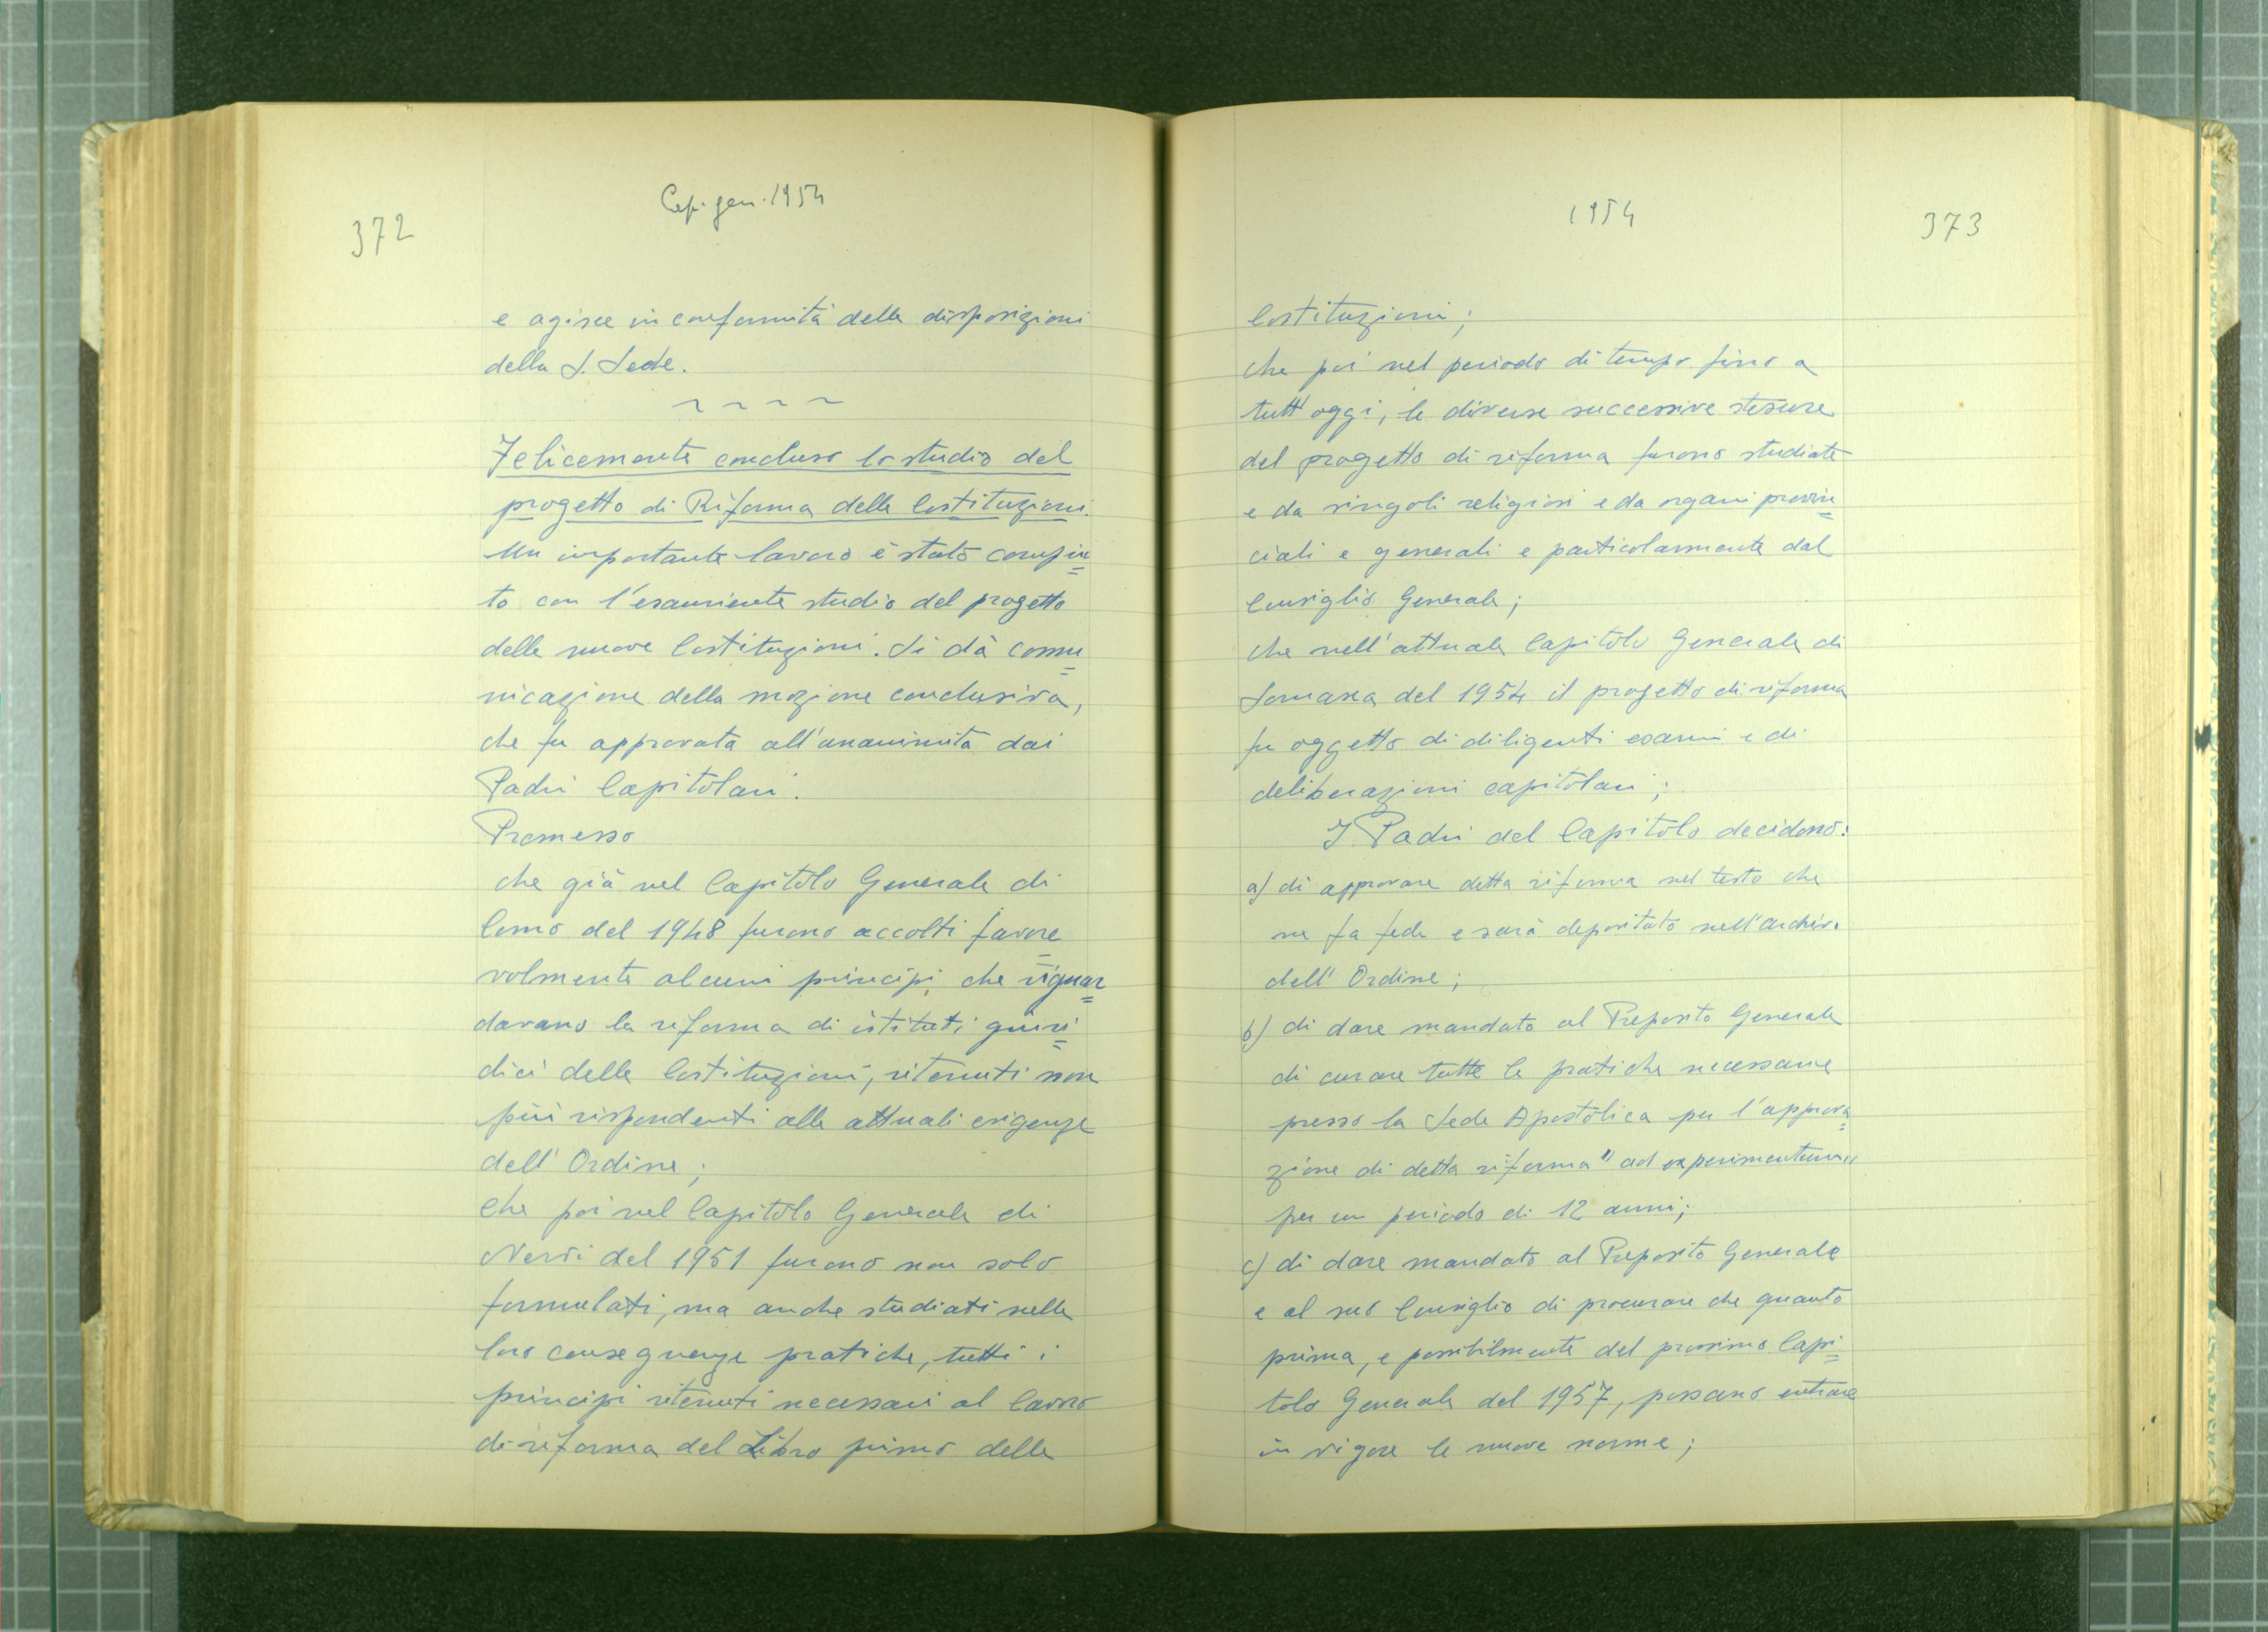 372
Cap. gen. 1954
e agisce in conformità delle disposizioni
della S. Sede.
~ ~ ~ ~
Felicemente concluso lo studio del
progetto di Riforma delle Costituzioni.
Un importante lavoro è stato compiu=
to con l'esauriente studio del progetto
delle nuove Costituzioni. Si dà comu=
nicazione della mozione conclusiva,
che fu approvata all'unanimità dai
Padri Capitolari.
Premesso
che già nel Capitolo Generale di
Como del 1948 furono accolti favore=
volmente alcuni principi che riguar=
davano la riforma di istituti giuri=
dici delle Costituzioni, ritenuti non
più rispondenti alle attuali esigenze
dell'Ordine;
che poi nel Capitolo Generale di
Nervi del 1951 furono non solo
formulati, ma anche studiati nelle
loro conseguenze pratiche, tutti i
principi ritenuti necessari al lavoro
di riforma del Libro primo delle
1954
373
Costituzioni;
che poi nel periodo di tempo fino a
tutt'oggi, le diverse successive stesure
del progetto di riforma furono studiate
e da singoli religiosi e da organi provin=
ciali e generali e particolarmente dal
Consiglio Generale;
che nell'attuale Capitolo Generale di
Somasca del 1954 il progetto di riforma
fu oggetto di diligenti esami e di
deliberazioni capitolari;
I Padri del Capitolo decidono:
a) di approvare detta riforma nel testo che
ne fa fede e sarà depositato nell'archivio
dell'Ordine;
b) di dare mandato al Preposito Generale
di curare tutte le pratiche necessarie
presso la Sede Apostolica per l'approva=
zione di detta riforma "ad experimentum"
per un periodo di 12 anni;
c) di dare mandato al Preposito Generale
e al suo Consiglio di procurare che quanto
prima, e possibilmente del prossimo Capi=
tolo Generale del 1957, possano entrare
in vigore le nuove norme;